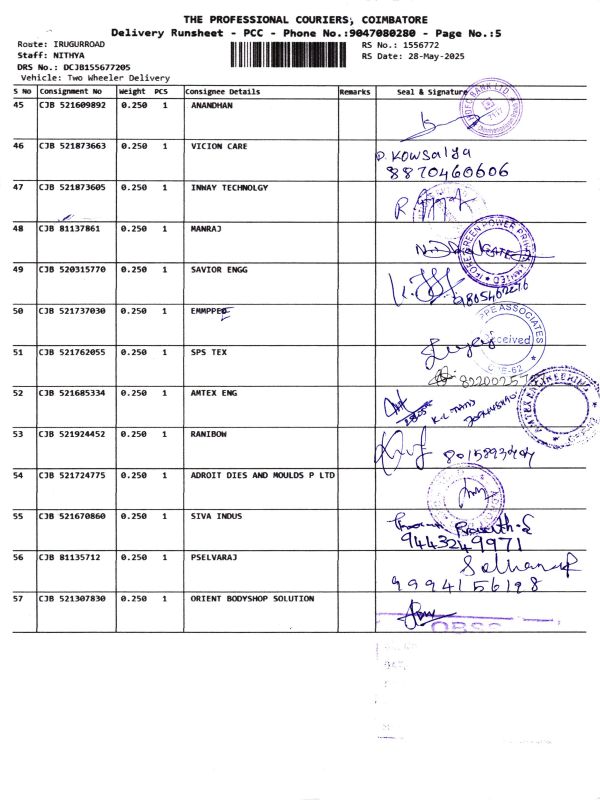 THE PROFESSIONAL COURIERS, COIMBATORE
Delivery Runsheet - PCC - Phone No.:9047080280 - Page No.:5
Route: IRUGURROAD
RS No.: 1556772
Staff: NITHYA
RS Date: 28-May-2025
DRS No.: DCJB155677205
Vehicle: Two Wheeler Delivery
S No Consignment No Weight PCS Consignee Details Remarks Seal & Signature
45 CJB 521609892 0.250 1 ANANDHAN
46 CJB 521873663 0.250 1 VICION CARE
P. Kowsalya
8870460606
47 CJB 521873605 0.250 1 INWAY TECHNOLGY
48 CJB 81137861 0.250 1 MANRAJ
GREEN POWER
49 CJB 520315770 0.250 1 SAVIOR ENGG
50 CJB 521737030 0.250 1 EMMPPEE
PPE ASSOCIATES
Received
51 CJB 521762055 0.250 1 SPS TEX
52 CJB 521685334 0.250 1 AMTEX ENG
AMTEX ENGINEERING
53 CJB 521924452 0.250 1 RANIBOW
54 CJB 521724775 0.250 1 ADROIT DIES AND MOULDS P LTD
55 CJB 521670860 0.250 1 SIVA INDUS
9443249971
56 CJB 81135712 0.250 1 PSELVARAJ
9994156198
57 CJB 521307830 0.250 1 ORIENT BODYSHOP SOLUTION